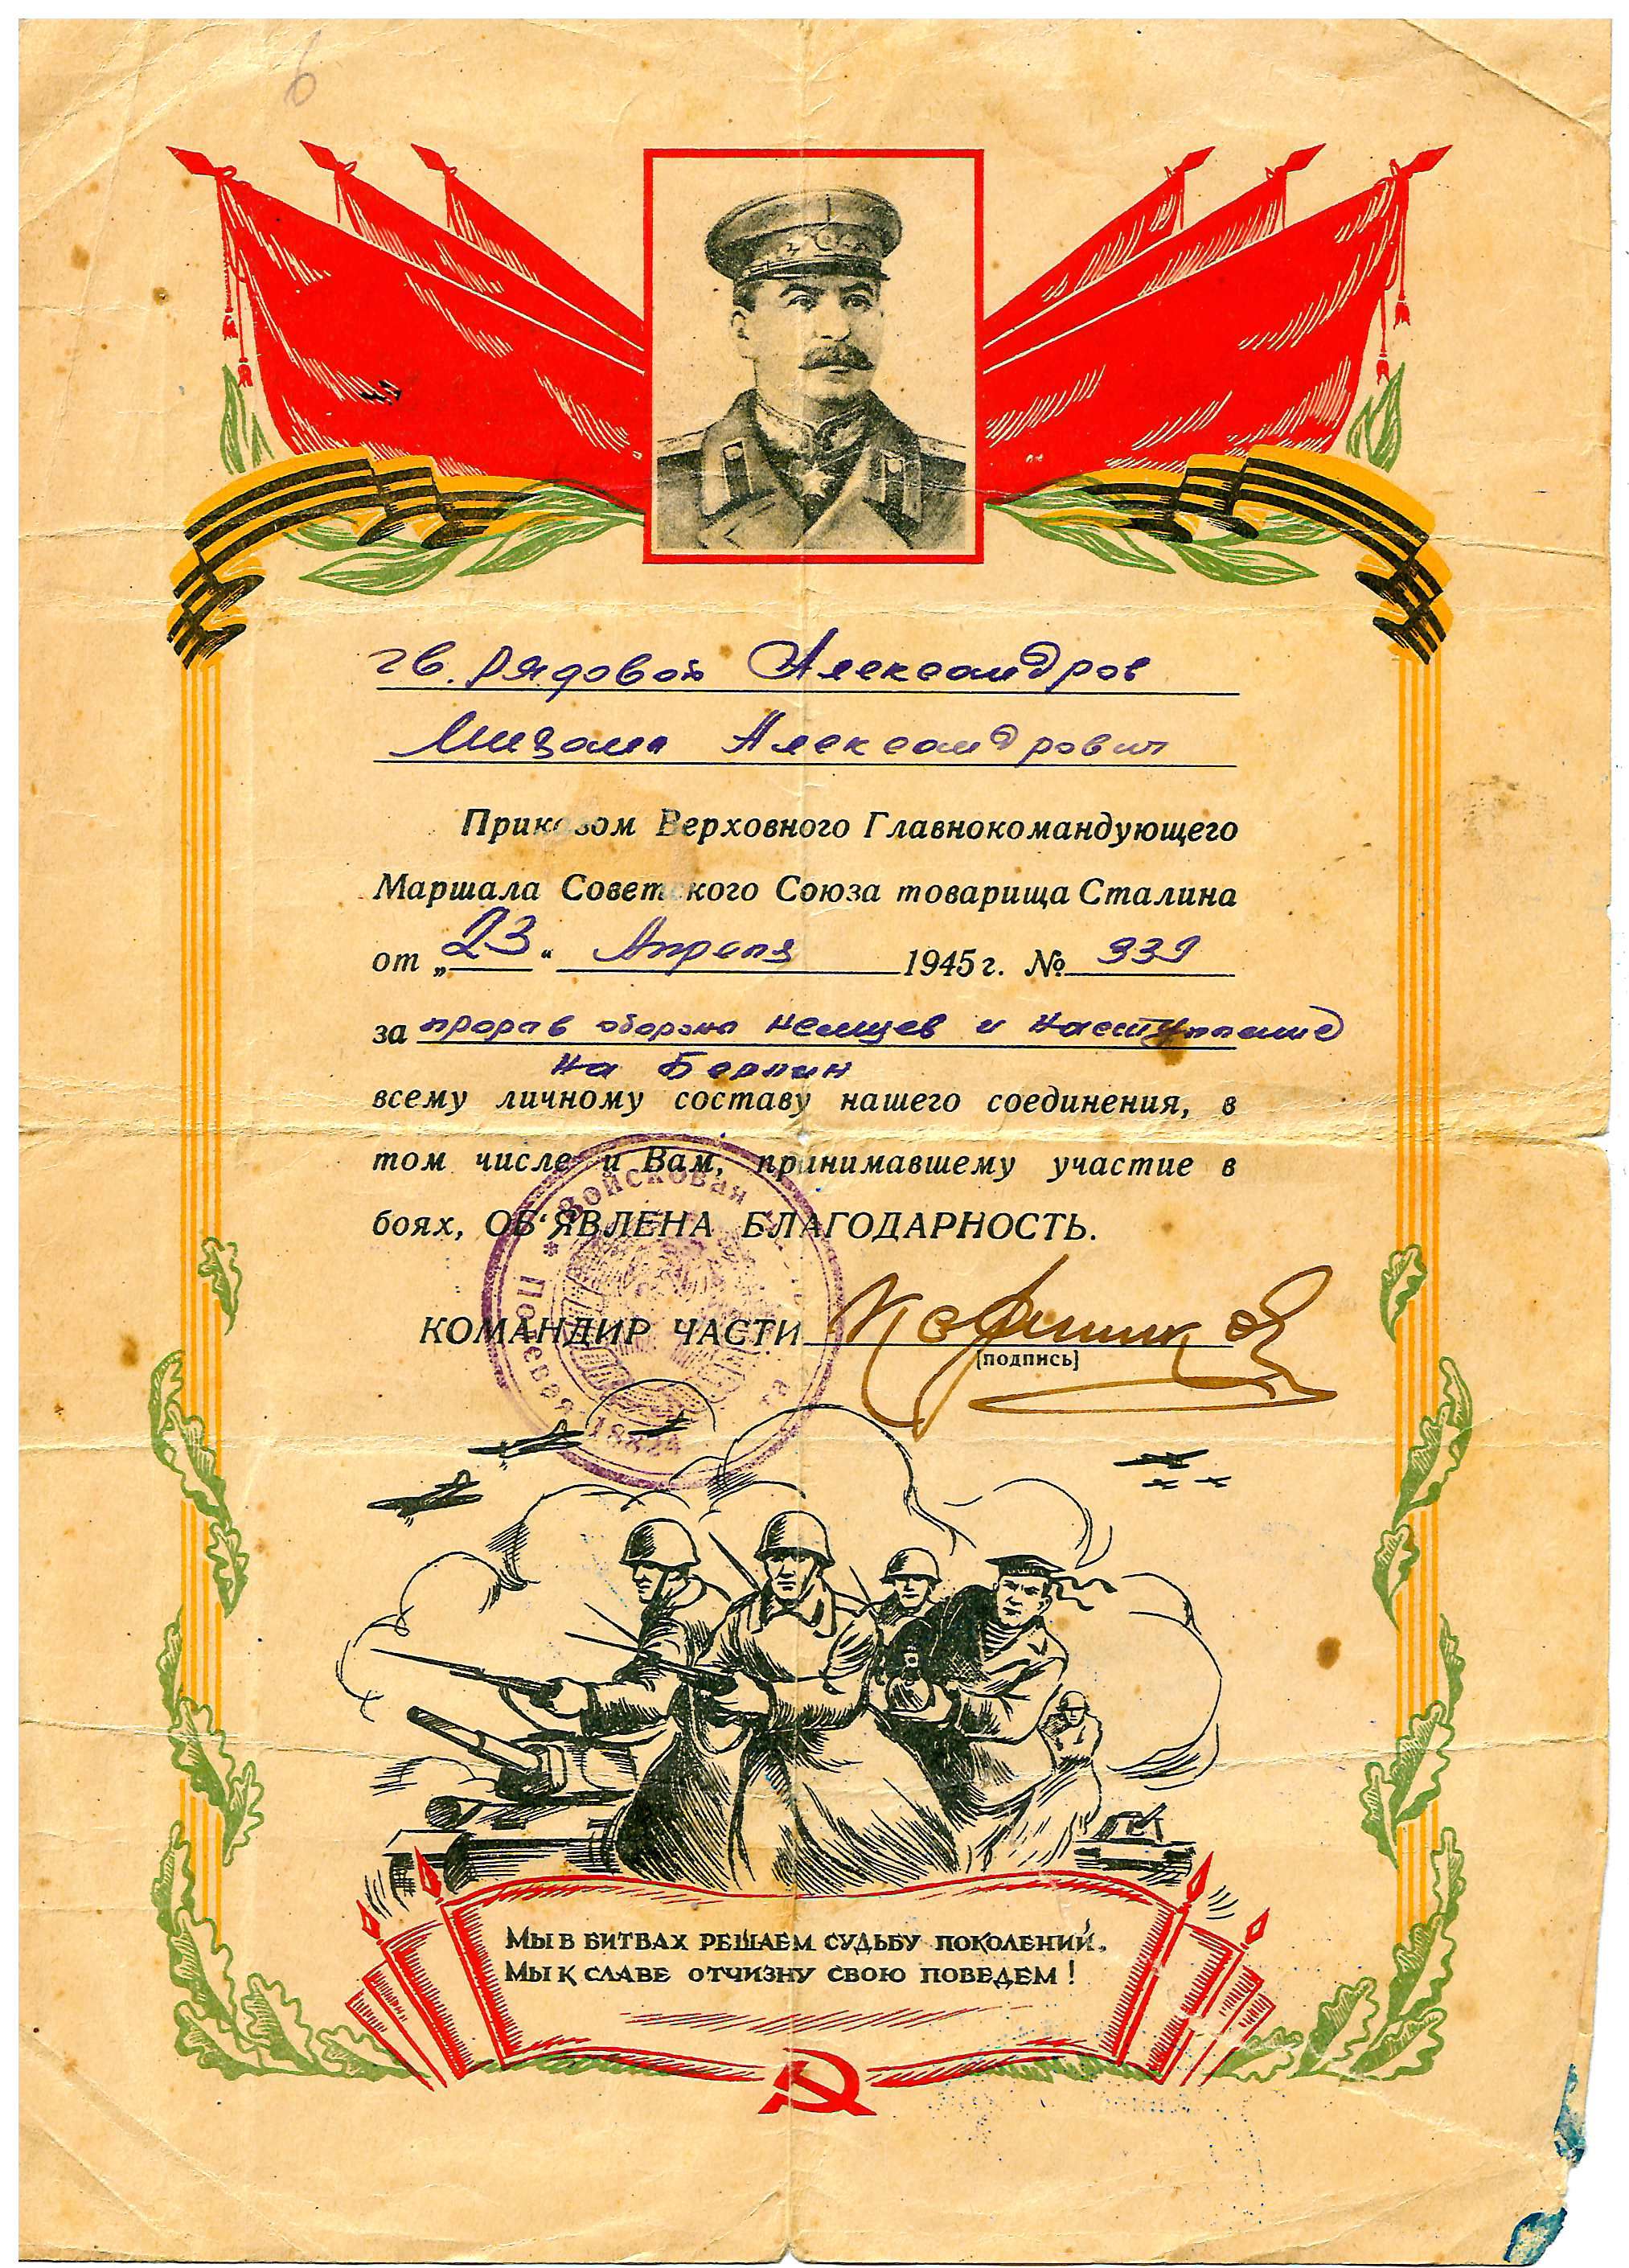 6
гв. рядовой Александров
Михаил Александрович
Приказом Верховного Главнокомандующего
Маршала Советского Союза товарища Сталина
от „23“ Апреля 1945 г. № 339
за прорыв обороны немцев и наступление
на Берлин
всему личному составу нашего соединения, в
том числе и Вам, принимавшему участие в
боях, ОБ‘ЯВЛЕНА БЛАГОДАРНОСТЬ.
Войсковая
Полевая
КОМАНДИР ЧАСТИ
[подпись]
МЫ В БИТВАХ РЕШАЕМ СУДЬБУ ПОКОЛЕНИЙ,
МЫ К СЛАВЕ ОТЧИЗНУ СВОЮ ПОВЕДЕМ!